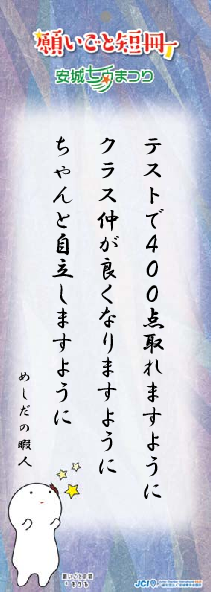 願いごと短冊
安城七夕まつり
テストで400点取れますように
クラス仲が良くなりますように
ちゃんと自立しますように
めしだの暇人
願いごと短冊
JCI